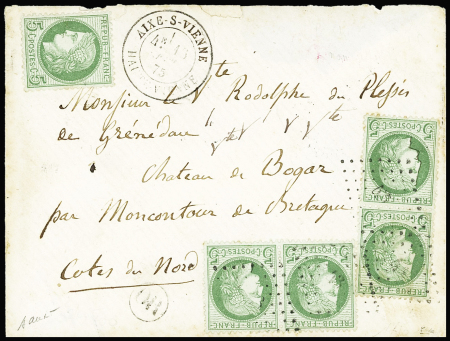 REPUB·FRANC
5 POSTES·C 5
AIXE-S-VIENNE
Monsieur le Vte Rodolphe du Plessis
de Grénédan
Chateau de Bogar
par Moncontour de Bretagne
Cotes du Nord
REPUB·FRANC
5 POSTES·C 5
REPUB·FRANC
5 POSTES·C 5
REPUB·FRANC
5 POSTES·C 5
REPUB·FRANC
5 POSTES·C 5